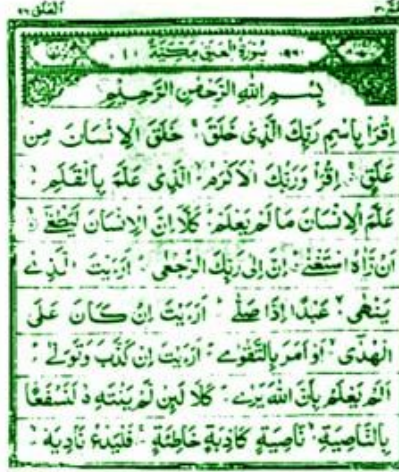 العلق ٩٦
سورة العلق مكية
بسم الله الرحمن الرحيم
اقرا باسم ربك الذي خلق خلق الانسان من
علق اقرا وربك الاكرم الذي علم بالقلم
علم الانسان ما لم يعلم كلا ان الانسان ليطغى
ان راه استغنى ان الى ربك الرجعى ارءيت الذي
ينهى عبدا اذا صلى ارءيت ان كان على
الهدى او امر بالتقوى ارءيت ان كذب وتولى
الم يعلم بان الله يرى كلا لىن لم ينته لنسفعا
بالناصية ناصية كاذبة خاطئة فليدع ناديه